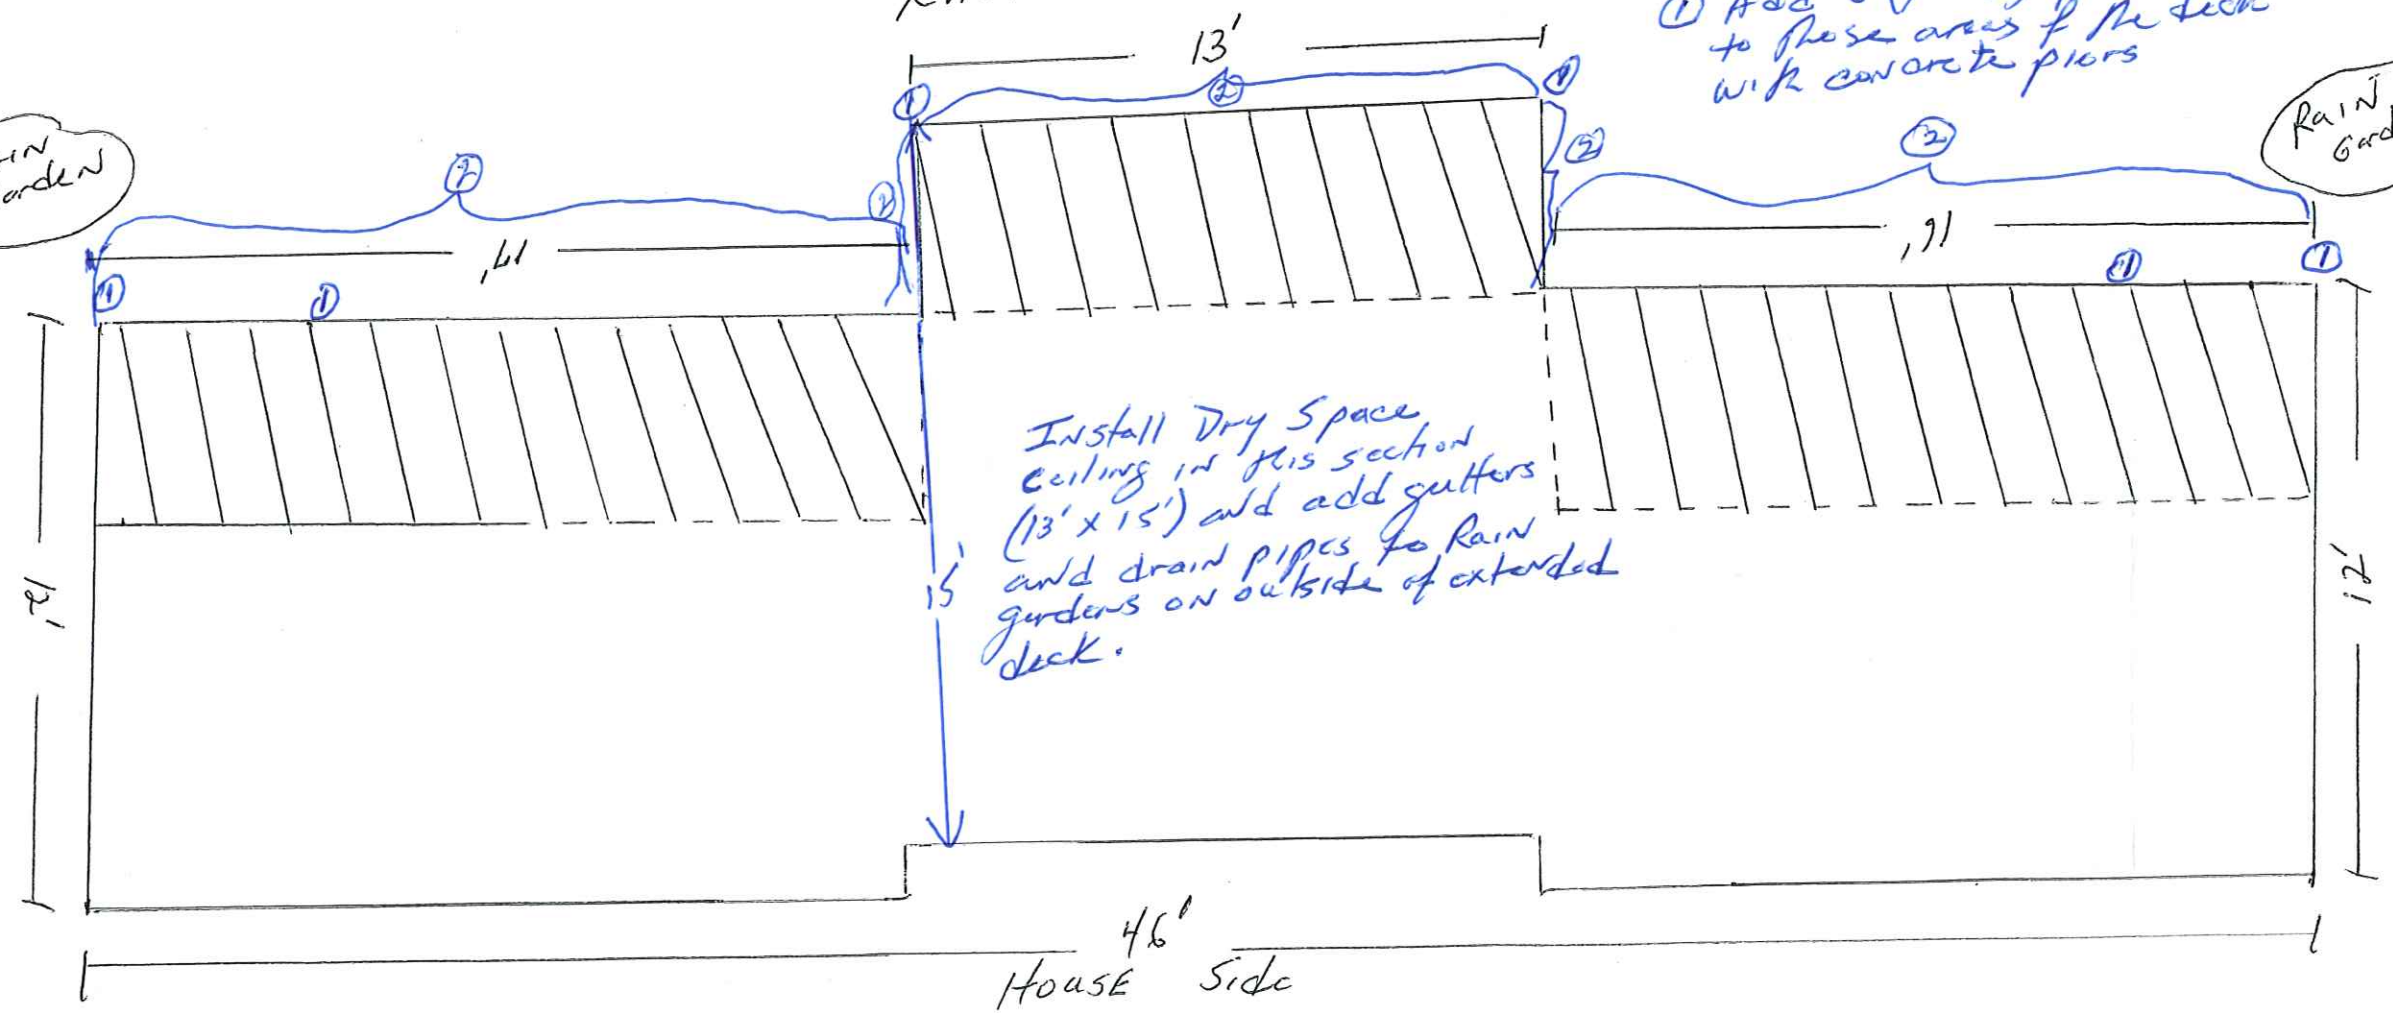 ① Add
to these areas of the deck
with concrete piers
13'
① ② ①
RAIN
Gard
②
② ② ②
arden
17'
16'
① ① ① ①
Install Dry Space
ceiling in this section
(13' x 15') and add gutters
and drain pipes to Rain
gardens on outside of extended
deck.
15'
12'
12'
46'
HOUSE Side